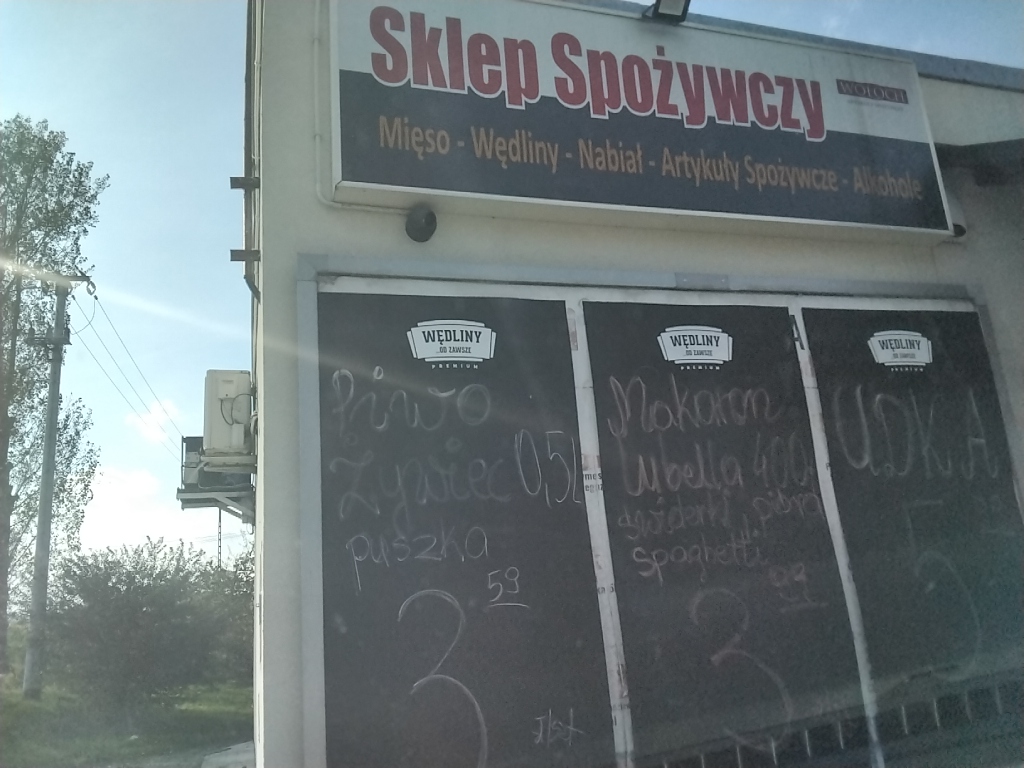 Sklep Spożywczy
WOŁOCH
Mięso - Wędliny - Nabiał - Artykuły Spożywcze - Alkohole
WĘDLINY
OD ZAWSZE
PREMIUM
Piwo
Żywiec 0,5L
puszka
3 59
WĘDLINY
OD ZAWSZE
PREMIUM
Makaron
Lubella 400
spaghetti
3
WĘDLINY
OD ZAWSZE
PREMIUM
UDKA
5